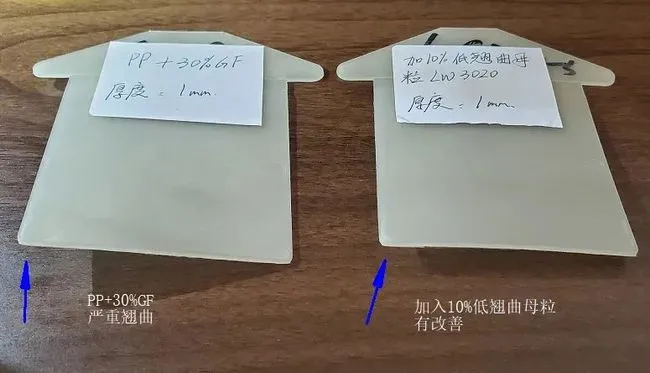 PP+30%GF
厚度:1mm.
加10%低翘曲母
粒LW3020
厚度:1mm.
PP+30%GF
严重翘曲
加入10%低翘曲母粒
有改善